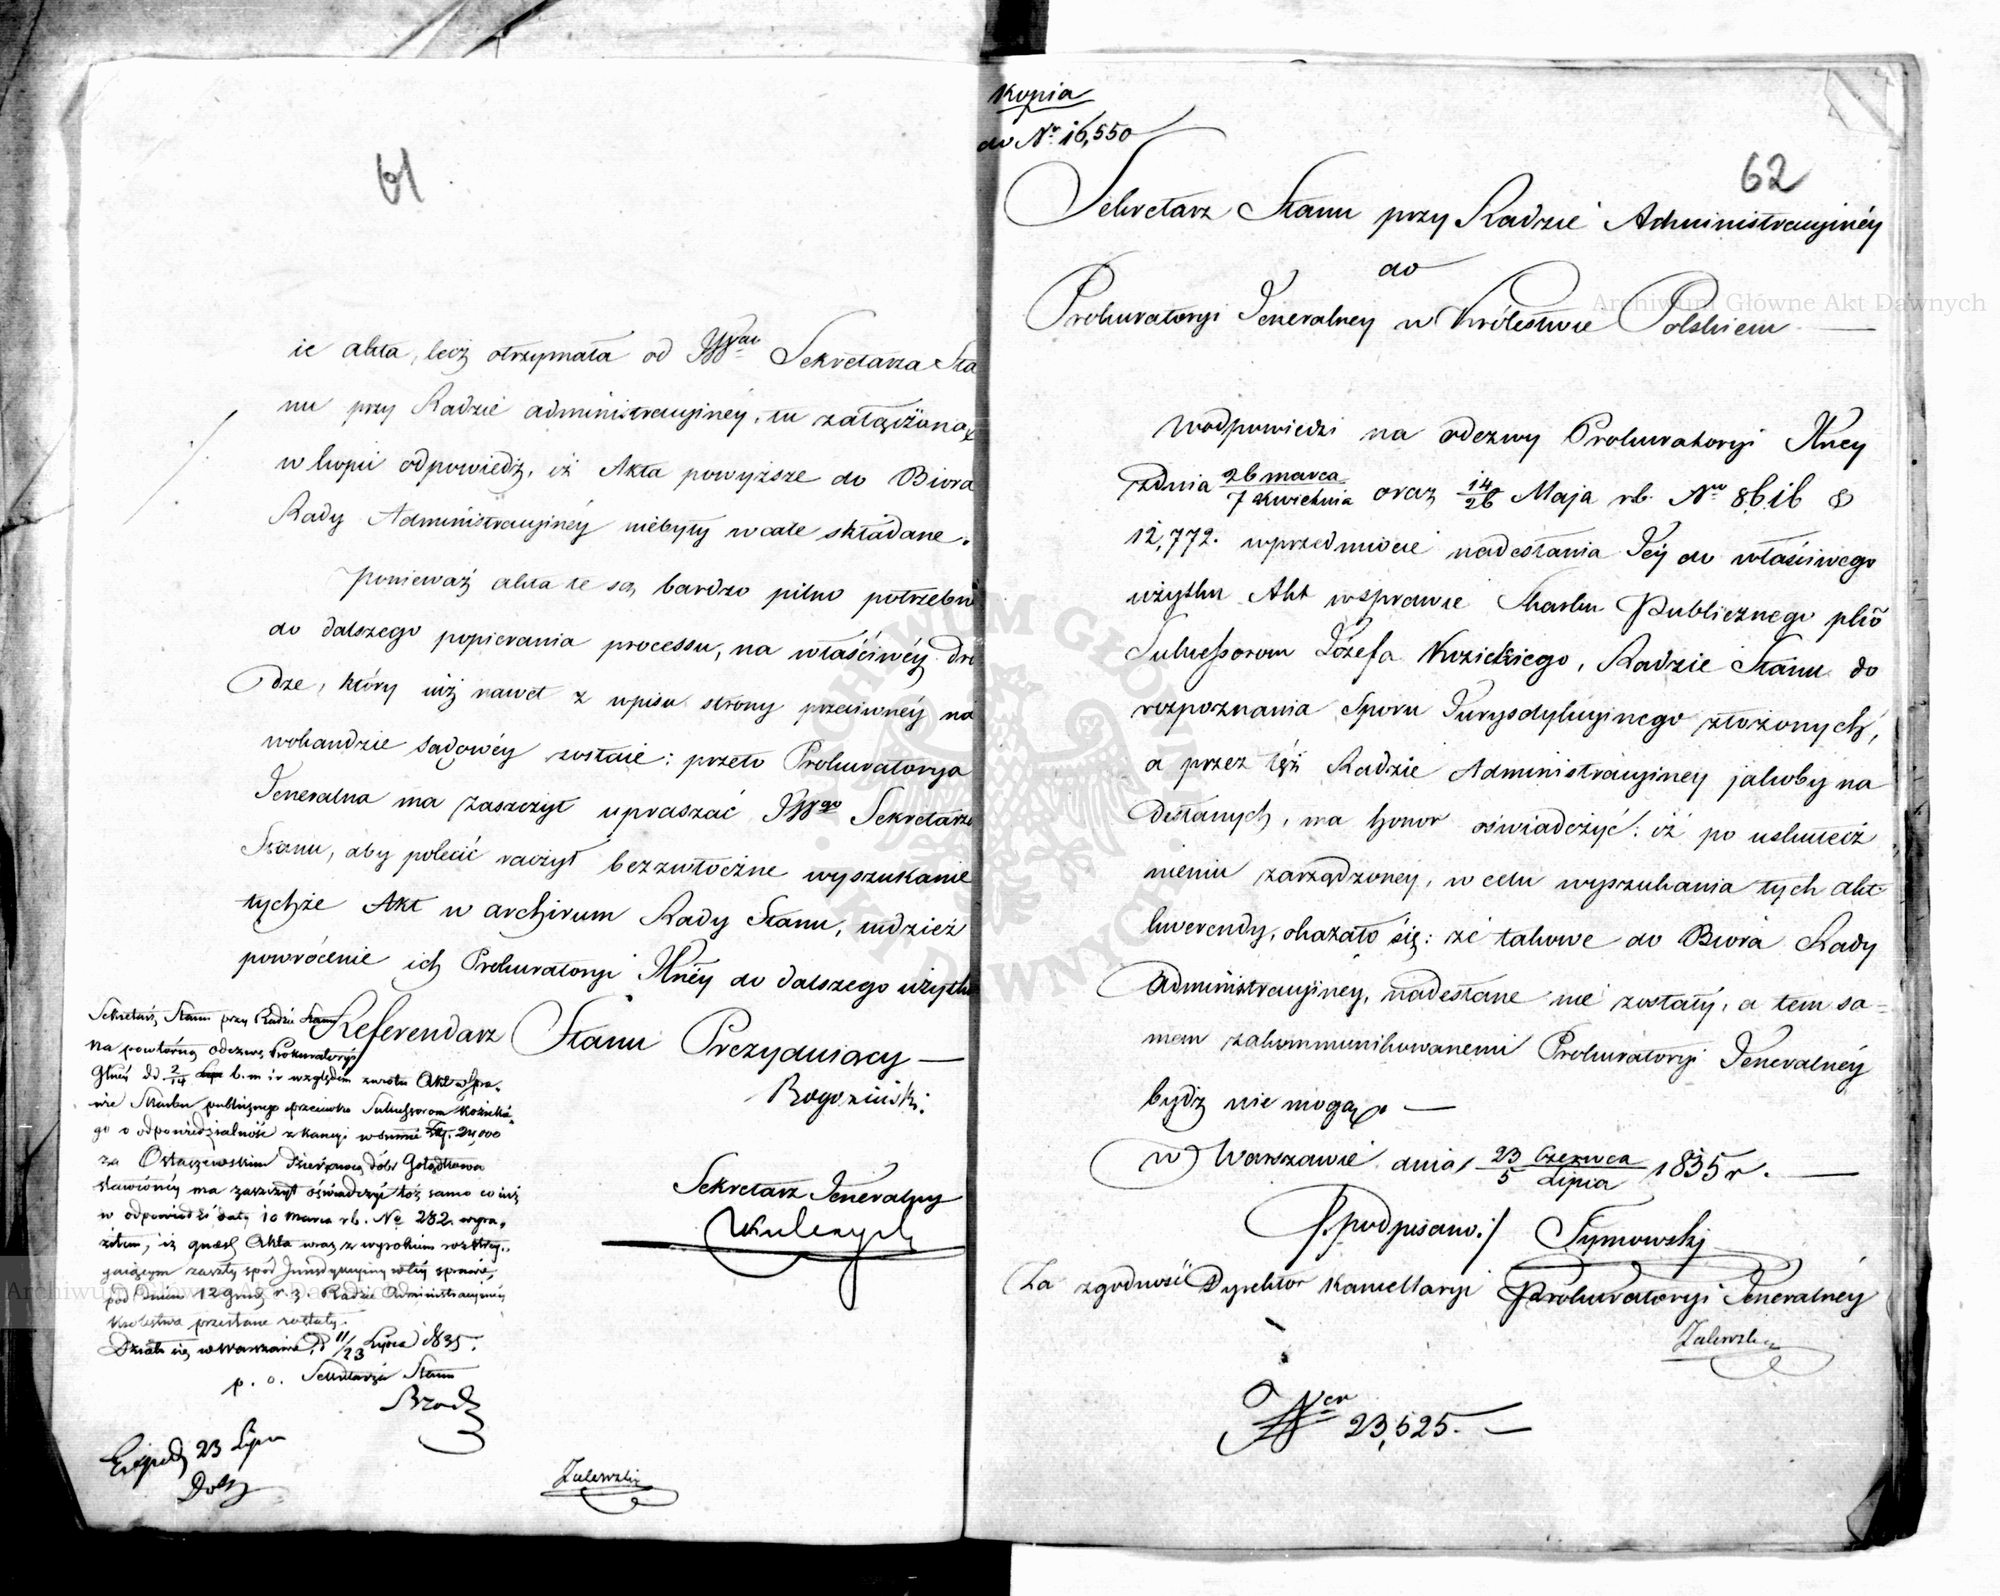 61
ie akta, lecz otrzymała od JWgo Sekretarza Sta
nu przy Radzie administracyinéy, tu załączoną
w kopii odpowiedź, iż Akta powyższe do Biora
Rady Administracyinéy niebyły wcale składane.
Ponieważ akta te są bardzo pilno potrzebne
do dalszego popierania processu, na właściwéy dro
dze, który iuż nawet z wpisu strony przeciwnéy na
wokandzie sądowéy zostaie; przeto Prokuratorya
Jeneralna ma zaszczyt upraszać JWgo Sekretarza
Stanu, aby polecić raczył bezzwłoczne wyszukanie
tychże Akt w archivum Rady Stanu, i
powrócenie ich Prokuratoryi Jlnéy do dalszego użytku
Referendarz Stanu Prezyduiący —
Rogoziński.
Sekretarz Jeneralny
Sekretarz Stanu przy Radzie Stanu
Na powtórną odezwę Prokuratoryi
Głnéy dd 2/14 b. m i r względem zwrotu Akt w Spra-
wie Skarbu publicznego przeciwko Sukcessorom Kozickie-
go o odpowiedzialność z kaucyi w summie Złp. 24,000
za Ostaszewskim dzierżawcą dóbr Gołądkowa
stawionéy ma zaszczyt oświadczyć toż samo co iuż
w odpowiedzi daty 10 Marca rb. No 282. wyra-
ził, iż Akta wraz z wyrokiem rozstrzy-
gaiącym zaszły spór Jurisdykcyiny w téy sprawie,
pod dniem 12 Grud. r. z. Radzie Administracyinéy
Królestwa przesłane zostały.
Działo się w Warszawie d. 11/23 Lipca 1835.
p. o. Sekretarza Stanu
Exped. 23 Lipca
Zalewski
Kopia
do No 16,550
62
Sekretarz Stanu przy Radzie Administracyinéy
do
Prokuratoryi Jeneralney w Królestwie Polskiem —
W odpowiedzi na odezwy Prokuratoryi Jlney
z dnia 26 marca/7 kwietnia oraz 14/26 Maja rb. Nro 8616 &
12,772. w przedmiocie nadesłania Jéy do właściwego
użytku Akt w sprawie Skarbu Publicznego pko
Sukcessorom Józefa Kozickiego, Radzie Stanu do
rozpoznania Sporu Jurysdykcyinego złożonych,
a przez téż Radzie Administracyiney jakoby na
desłanych, ma honor oświadczyć: iż po uskutecz
nieniu zarządzoney, w celu wyszukania tych akt
kwerendy, okazało się: że takowe do Biora Rady
Administracyiney, nadesłane nie zostały, a tem sa=
mem zakommunikowanemi Prokuratoryi Jeneralnéy
bydź nie mogą. —
w Warszawie dnia 23 Czerwca/5 Lipca 1835 r. —
/:podpisano:/ Tymowski
Za zgodność Dyrektor Kancellaryi Prokuratoryi Jeneralnéy
Zalewski
Ner 23,525. —
Archiwum Główne Akt Dawnych
ARCHIWUM GŁÓWNE AKT DAWNYCH
Archiwum Główne Akt Dawnych